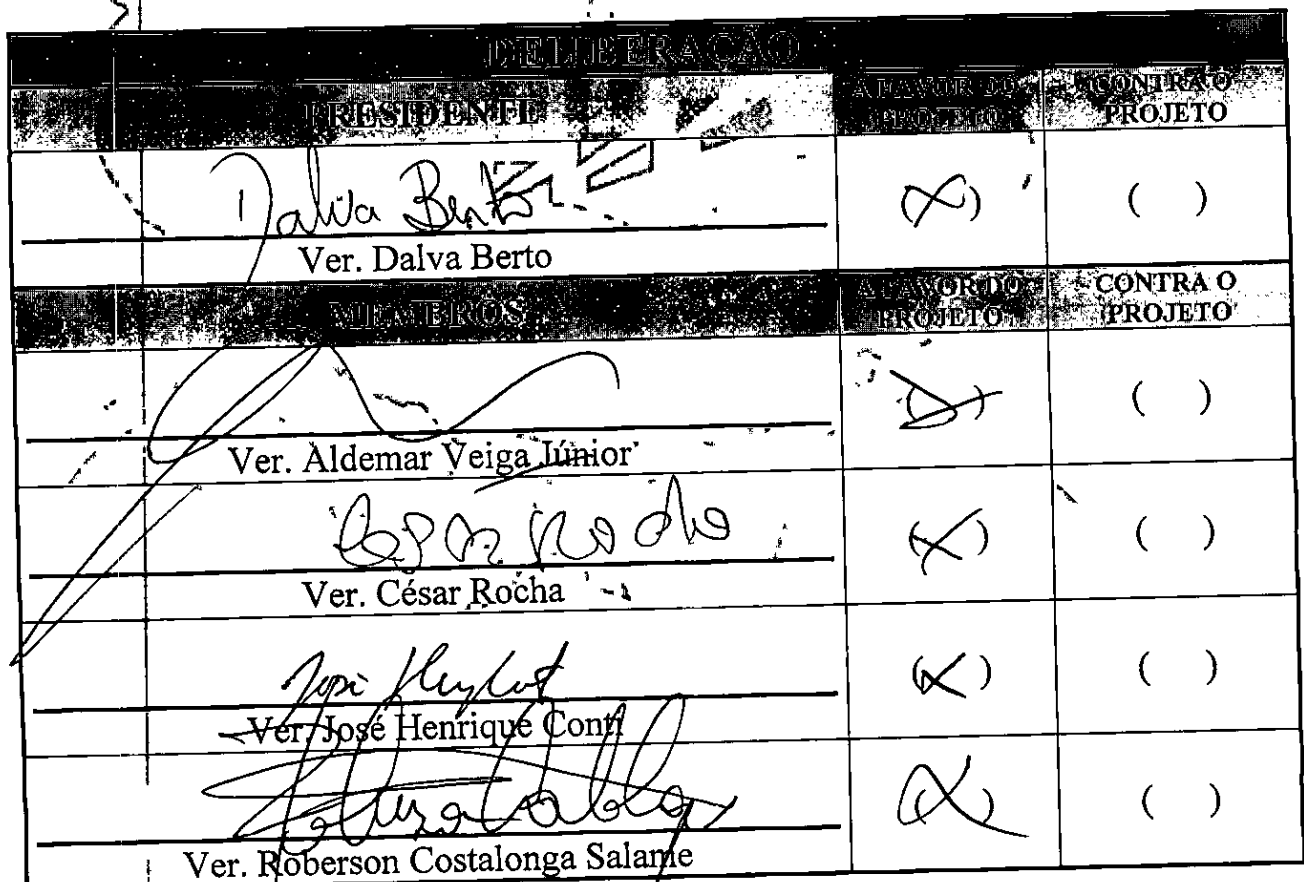 DELIBERAÇÃO
PRESIDENTE A FAVOR DO PROJETO CONTRA O PROJETO
Dalva Berto (X) ( )
Ver. Dalva Berto
MEMBROS A FAVOR DO PROJETO CONTRA O PROJETO
(X) ( )
Ver. Aldemar Veiga Júnior
César Rocha (X) ( )
Ver. César Rocha
José (X) ( )
Ver. José Henrique Conti
(X) ( )
Ver. Roberson Costalonga Salame